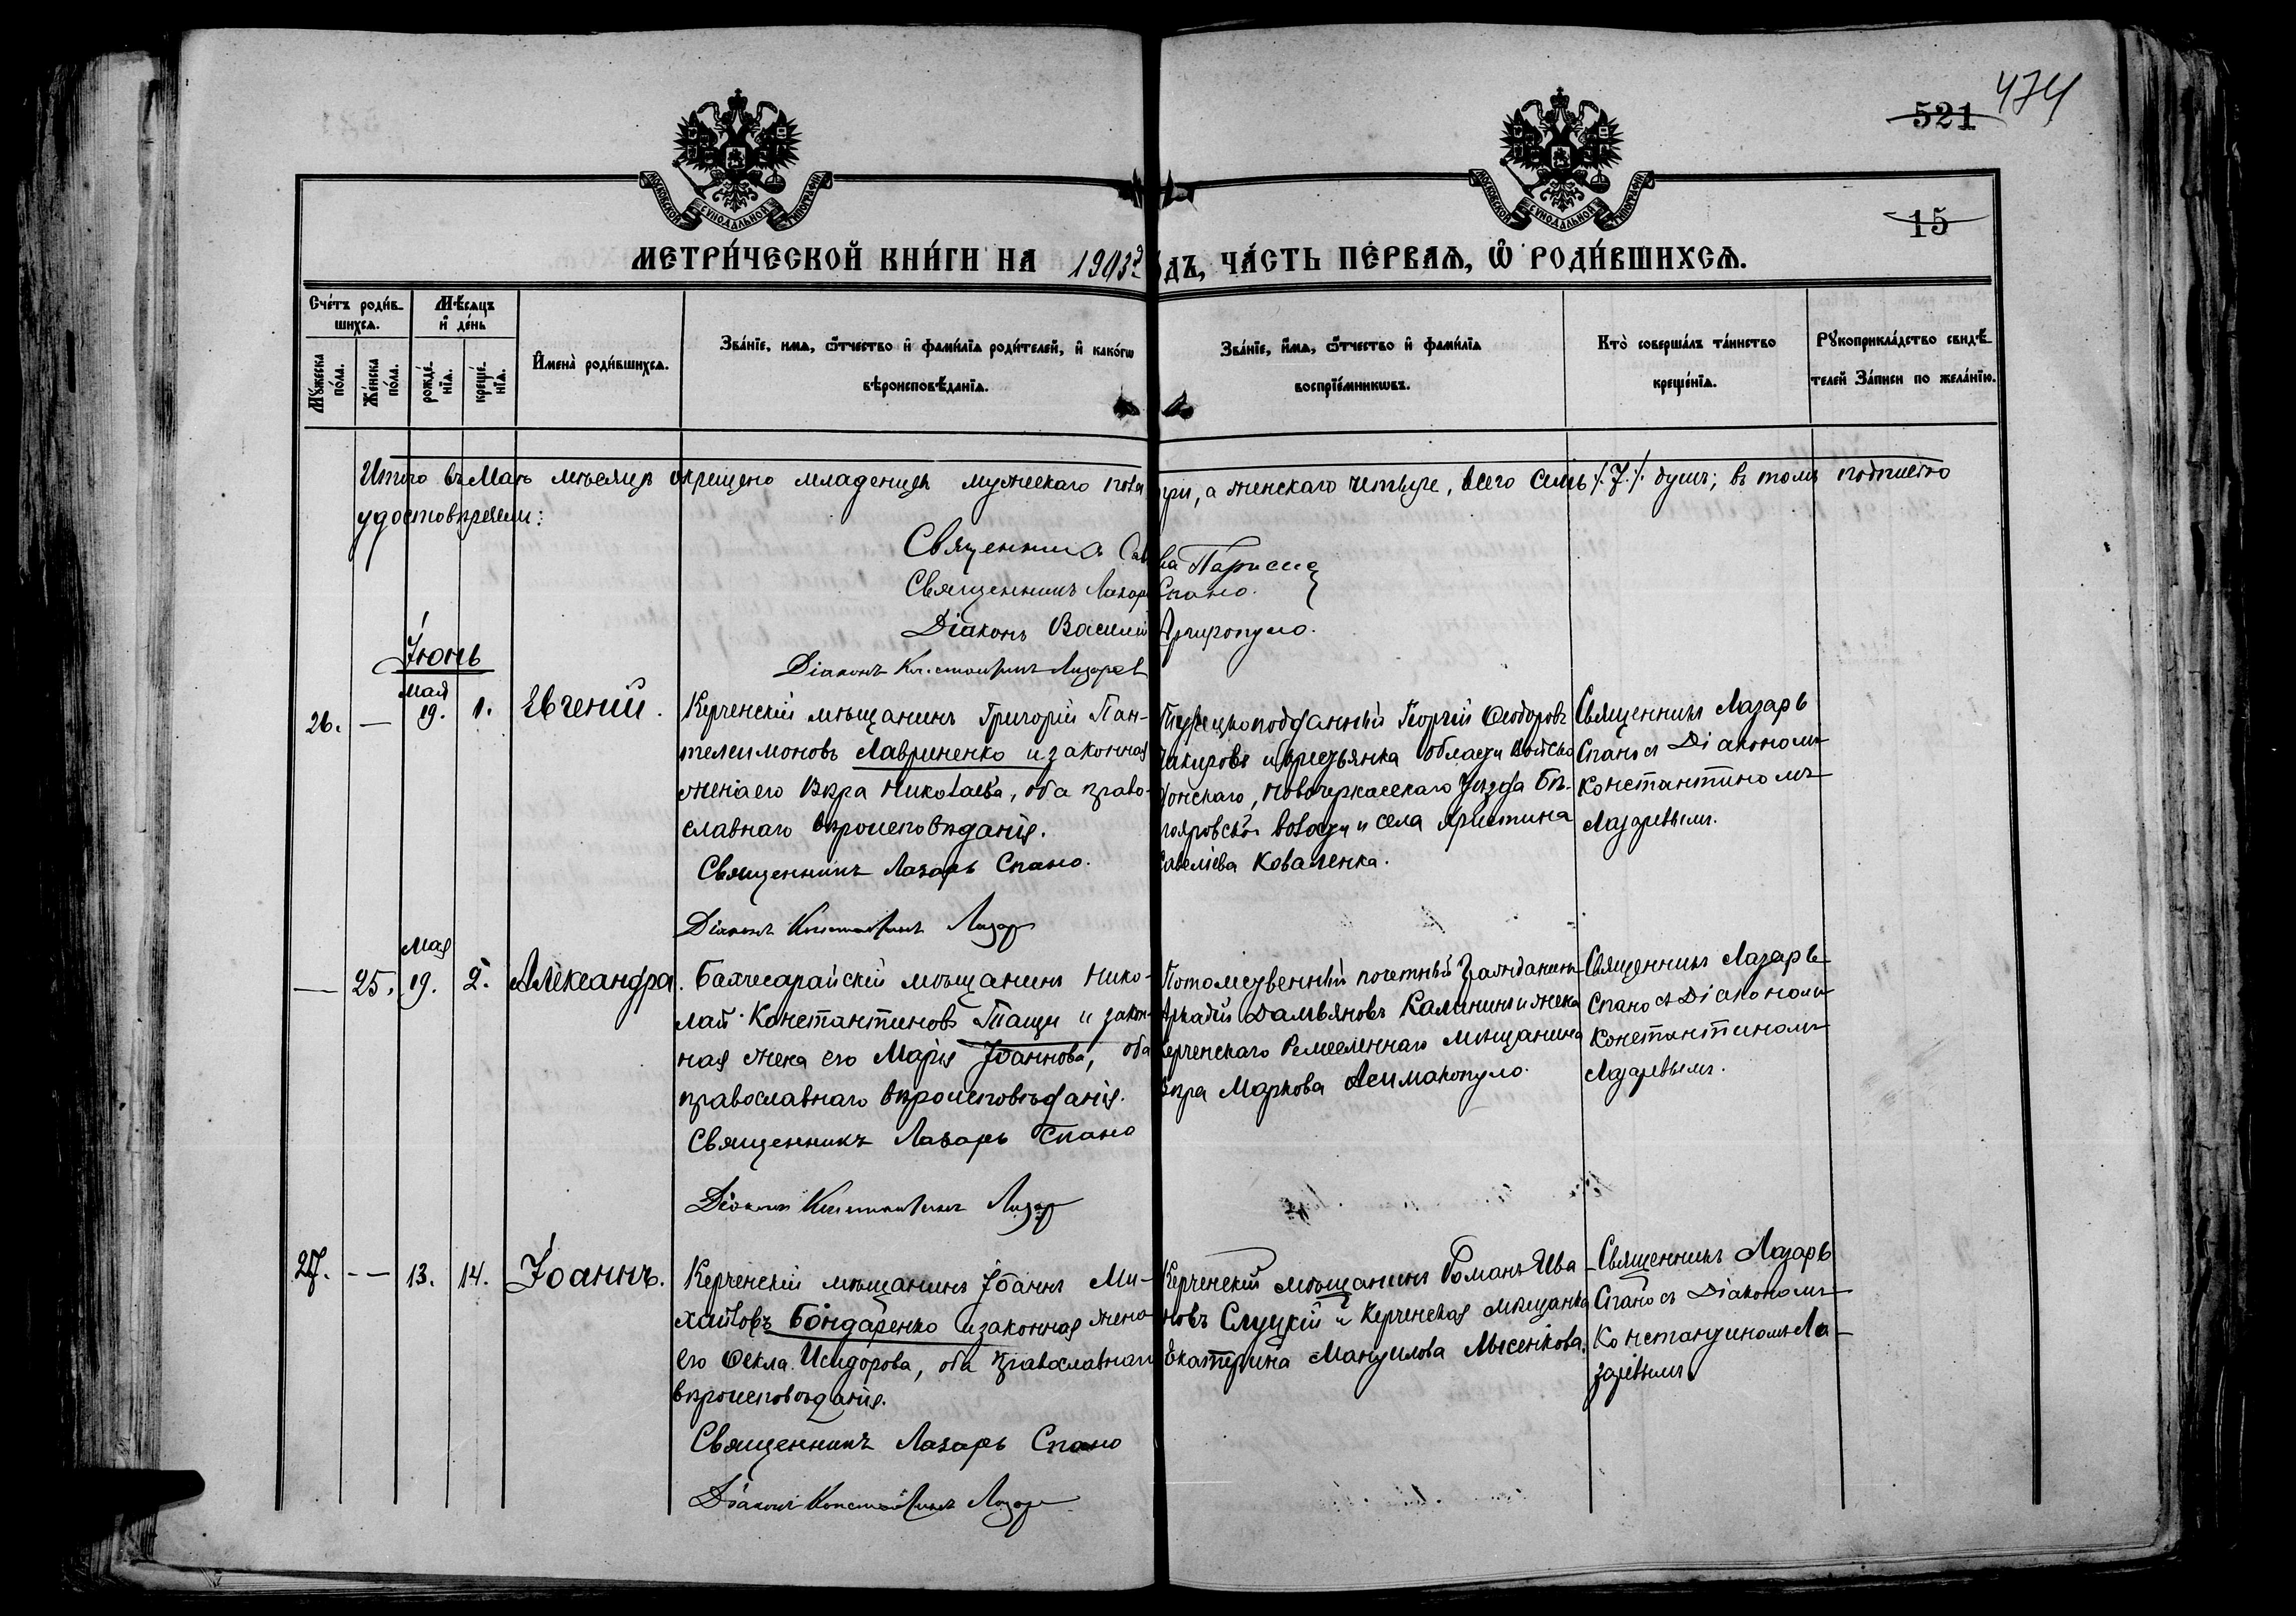 474
521
15
МОСКОВСКОЙ СѴНОДАЛЬНОЙ ТИПОГРАФІИ
МОСКОВСКОЙ СѴНОДАЛЬНОЙ ТИПОГРАФІИ
МЕТРИ́ЧЕСКОЙ КНИ́ГИ НА 1903 дъ, ЧА́СТЬ ПЕ́РВАѦ, Ѡ РОДИ́ВШИХСѦ.
Сче́тъ роди́в-
шихсѧ.
Мꙋ́жеска по́ла.
Же́нска по́ла.
Мѣ́сѧцъ
и҆ де́нь
рожде́-
нїѧ.
креще́-
нїѧ.
И҆мена̀ роди́вшихсѧ.
Зва́нїе, и҆мѧ, ѻ҆́тчество и҆ фами́лїѧ роди́телей, и҆ како́гѡ
вѣроисповѣ́данїѧ.
Зва́нїе, и҆́мѧ, ѻ҆́тчество и҆ фами́лїѧ
воспрїе́мникѡвъ.
Кто̀ соверша́лъ та́инство
креще́нїѧ.
Рꙋкоприкла́дство свидѣ́-
телей за́писи по жела́нїю.
Итого въ Маѣ мѣсяцѣ окрещено младенцевъ мужескаго пола три, а женскаго четыре, всего семь ./.7./. душъ; въ томъ подписью
удостовѣряемъ:
Священникъ Савва
Священникъ Лазарь Спано.
Діаконъ Василій Аргиропуло.
Діаконъ Константинъ Лазарев
Іюнь
26. — Мая 19. 1. Евгеній.
Керченскій мѣщанинъ Григорій Пан-
телеимоновъ Лавриненко и законная
жена его Вѣра Николаева, оба право-
славнаго вѣроисповѣданія.
Священникъ Лазарь Спано.
Діаконъ Константинъ Лазар
Турецкоподданный Георгій Ѳеодоровъ
и крестьянка Области Войска
Донскаго, Новочеркасскаго уѣзда
волости и села Христина
Савеліева Коваленка.
Священникъ Лазарь
Спано съ Діакономъ
Константиномъ
Лазаревымъ.
— 25. Мая 19. 2. Александра.
Бахчесарайскій мѣщанинъ Нико-
лай Константиновъ Тащи и закон-
ная жена его Марія Іоаннова, оба
православнаго вѣроисповѣданія.
Священникъ Лазарь Спано
Діаконъ Константинъ Лазар
Потомственный почетный Гражданинъ
Аркадій Дамьяновъ Калининъ и жена
Керченскаго Ремесленнаго мѣщанина
Вѣра Маркова Асимакопуло.
Священникъ Лазарь
Спано съ Діакономъ
Константиномъ
Лазаревымъ.
27. — 13. 14. Іоаннъ.
Керченскій мѣщанинъ Іоаннъ Ми-
хайловъ Бондаренко и законная жена
его Ѳекла Исидорова, оба православнаго
вѣроисповѣданія.
Священникъ Лазарь Спано
Діаконъ Константинъ Лазар
Керченскій мѣщанинъ Романъ Ива-
новъ Слуцкій и Керченская мѣщанка
Екатерина Мануилова Мысенкова.
Священникъ Лазарь
Спано съ Діакономъ
Константиномъ Ла-
заревымъ